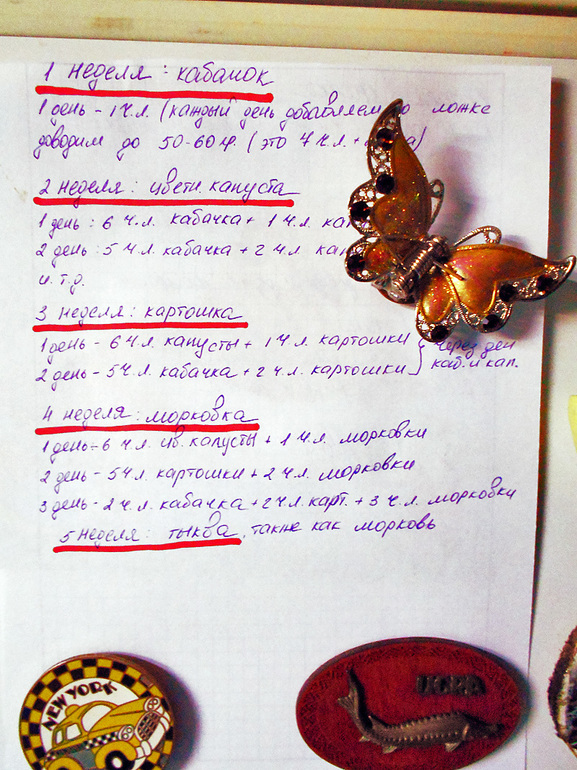 1 неделя: кабачок
1 день - 1 ч.л. (каждый день добавляем по ложке
доводим до 50-60 гр. (это 7 ч.л. +
2 неделя: цветн. капуста
1 день: 6 ч.л. кабачка + 1 ч.л.
2 день: 5 ч.л. кабачка + 2 ч.л.
и т.д.
3 неделя: картошка
1 день - 6 ч.л. капусты + 1 ч.л. картошки } через ден
2 день - 5 ч.л. кабачка + 2 ч.л. картошки } каб. и кап.
4 неделя: морковка
1 день - 6 ч.л. цв. капусты + 1 ч.л. морковки
2 день - 5 ч.л. картошки + 2 ч.л. морковки
3 день - 2 ч.л. кабачка + 2 ч.л. карт. + 3 ч.л. морковки
5 неделя: тыква, также как морковь
NEW YORK